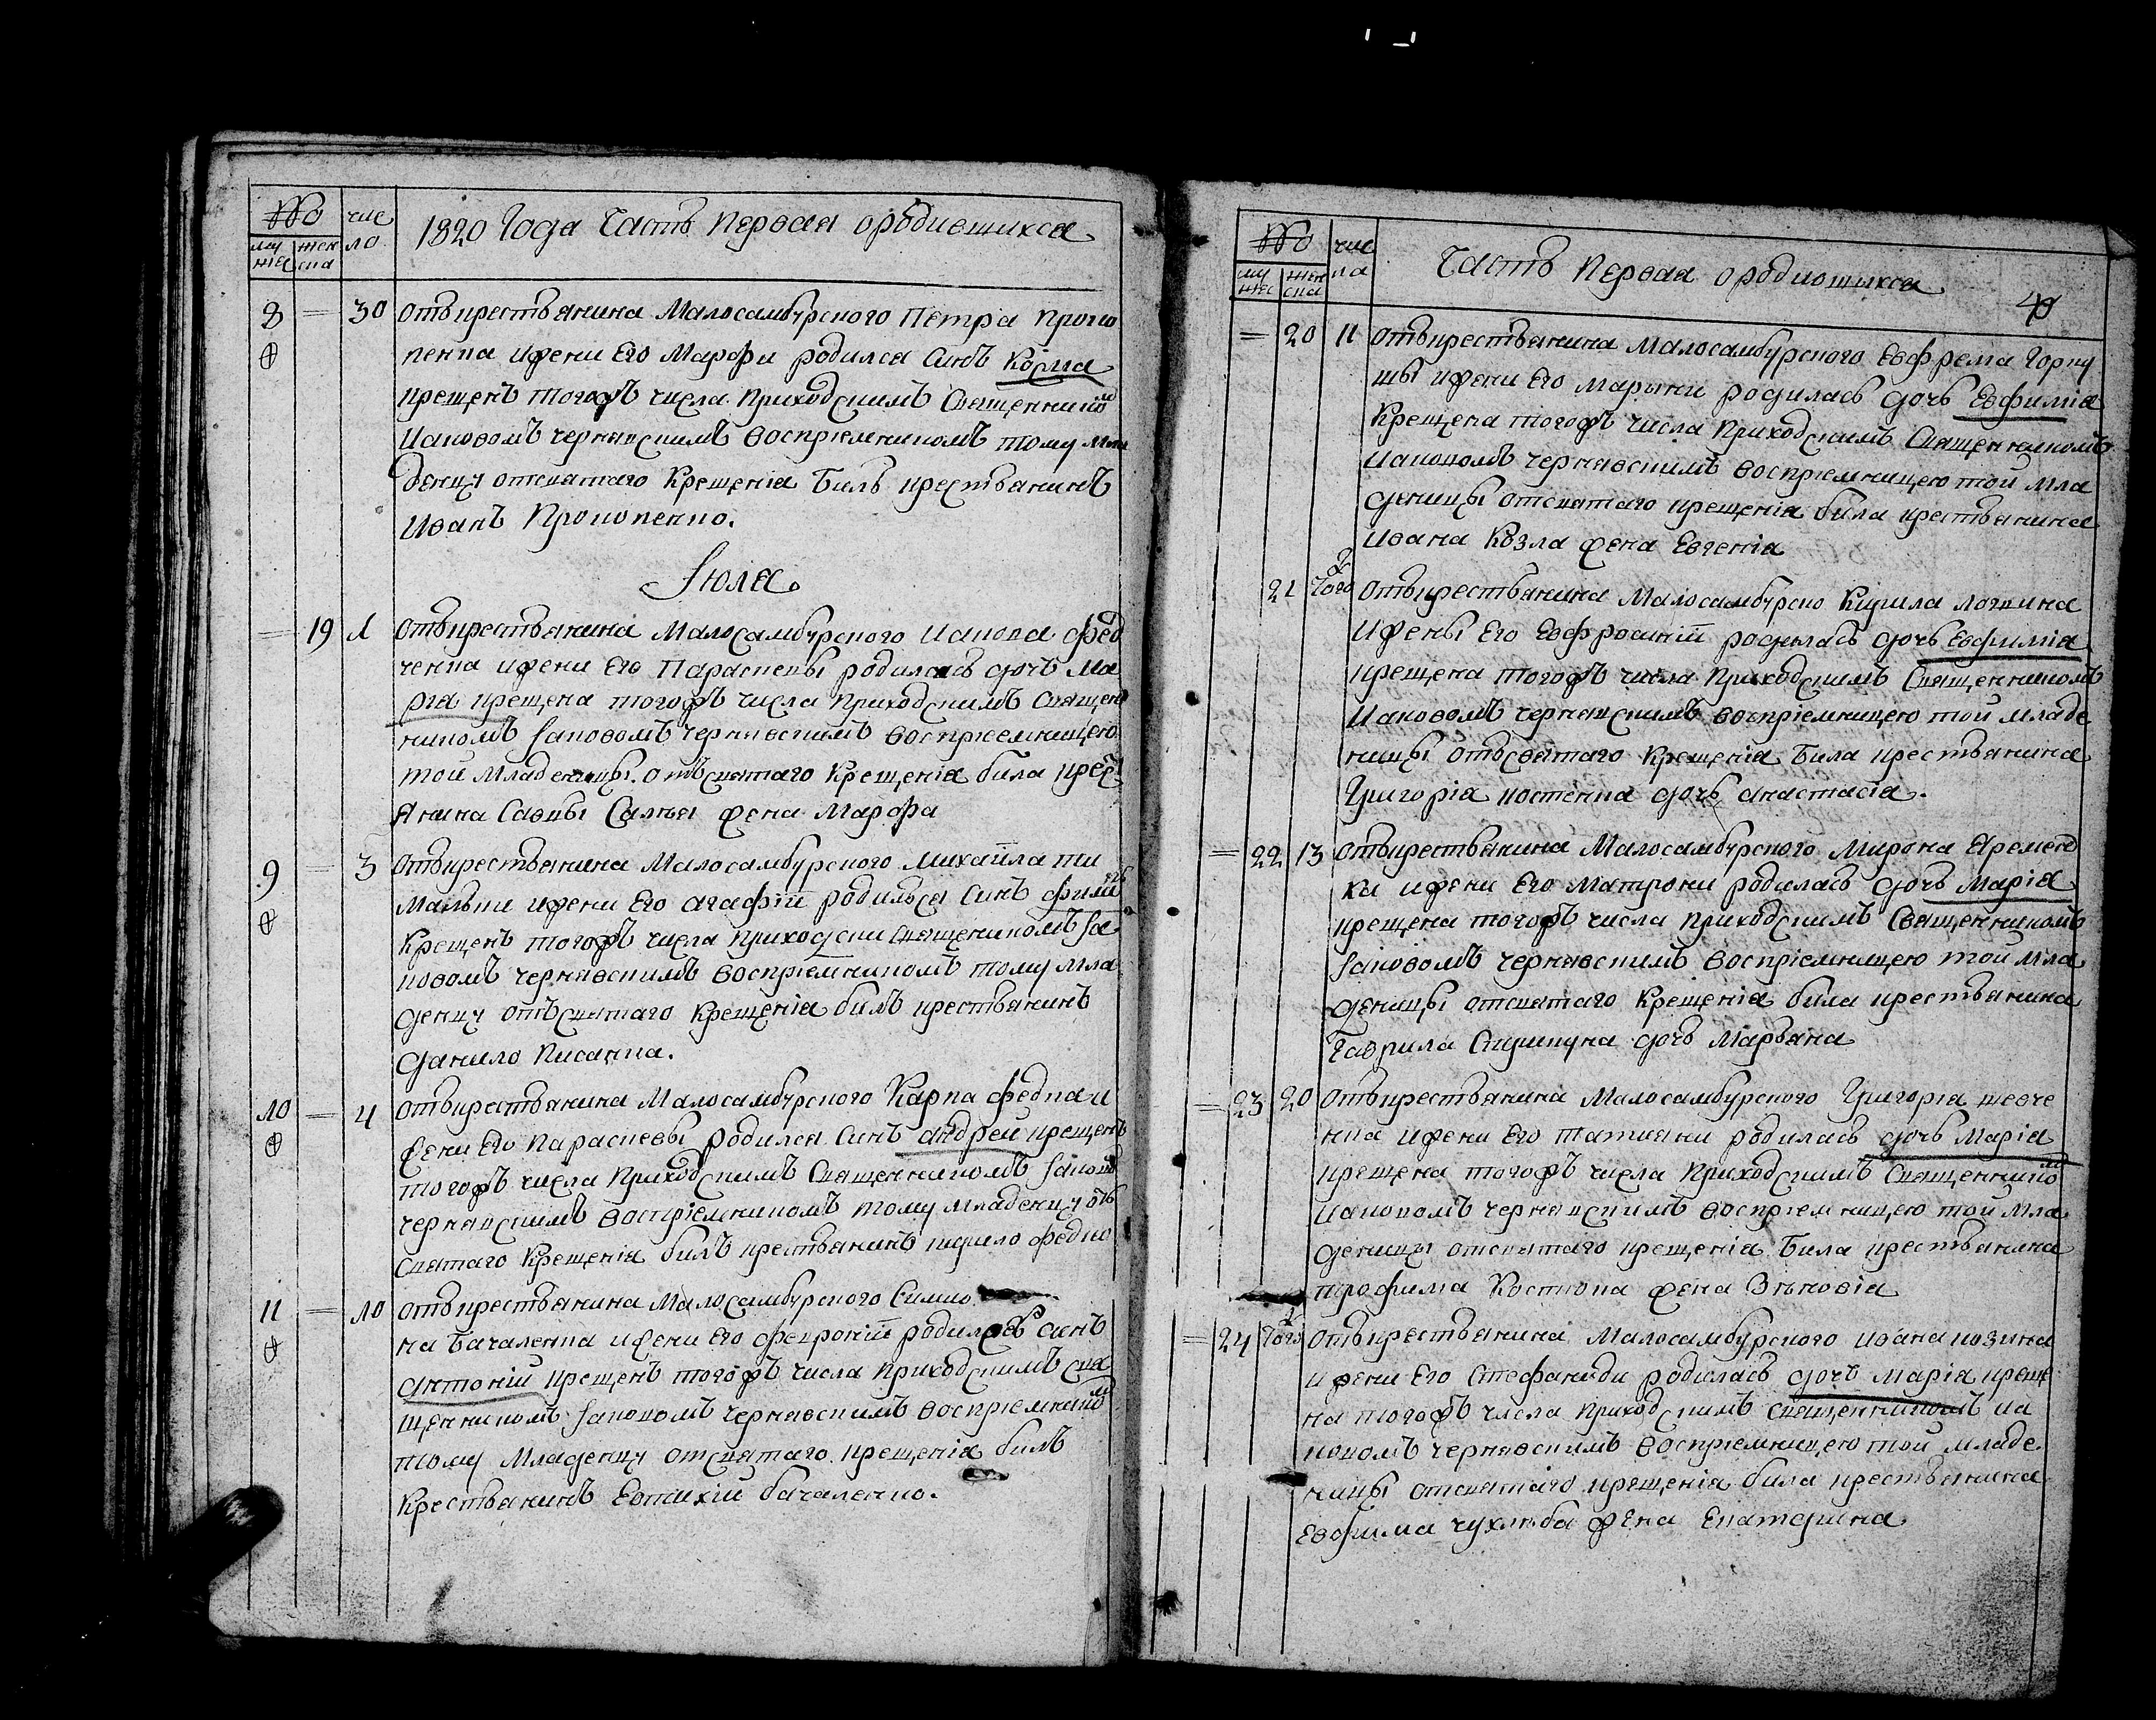 № чис
му жен ло
жес ска
1820 Года Часть Первая ородившихся
8 = 30 Отъкрестьянина Малосамбурского Петра Проко
пенка ижени Его Марфи родился Синъ Косма
крещенъ тогожъ числа Приходскимъ Священникомъ
Иаковомъ Чернявскимъ воспріемникомъ тому мла
денцу отсвятаго Крещенія билъ крестьянинъ
Иванъ Прокопенко.
Іюля
= 19 1 Отъкрестьянина Малосамбурского Иакова Фед
ченка ижени Его Параскевы родилась дочъ Ма
рія крещена тогожъ числа Приходскимъ Священ
никомъ Іаковомъ Чернявскимъ воспріемницею
той младеницы отъсвятаго Крещенія била крест
янина Саввы жена Марфа
9 = 3 Отъкрестьянина Малосамбурского Михаила
ижени Его Агафіи родилься Синъ
Крещенъ тогожъ числа приходски Священикомъ Іа
ковомъ Чернявскимъ воспріемникомъ тому мла
денцу отъсвятаго Крещенія билъ крестьянинъ
Данило Писанка.
10 = 4 Отъкрестьянина Малосамбурского Карпа Федка и
жени Его Параскевы родился Синъ Андрей крещенъ
тогожъ числа Приходскимъ Священникомъ Іаково
Чернявскимъ воспріемникомъ тому младенцу отъ
святаго Крещенія билъ крестьянинъ Федко
11 = 10 Отъкрестьянина Малосамбурского Симио
на Бачаленка ижени Его Февроніи родилсЪ синъ
Антоній крещенъ тогожъ числа Приходскимъ свя
щенникомъ Іаковомъ Чернявскимъ воспріемником
тому Младенцу отсвятаго крещенія билъ
Крестьянинъ Евтихій бачаленко.
№ чис
му жен ла
жес ска
Часть Первая ородившыхся
= 20 11 Отъкрестьянина Малосамбурского Евфрема Горку
шы ижени Его Марыни родилась дочъ Евфимія
Крещена тогожъ числа Приходскимъ Священникомъ
Иаковомъ Чернявскимъ воспріемницею той мла
деницы отсвятаго крещенія била крестьянина
Ивана Козла жена Евгенія
21 Того ж Отъкрестьянина Малосамбурско Кирила логвина
ижены Его Евфросиніи родилась дочъ Евфимія
крещена тогожъ числа Приходскимъ Священникомъ
Иаковомъ Чернявскимъ воспріемницею той младе
ницы отъсвятаго Крещенія Била крестьянина
Григорія костенка дочъ анастасія.
= 22 13 Отъкрестьянина Малосамбурского Мирона Яремен
ка ижени Его Матрони родилась дочъ Марія
крещена тогожъ числа приходскимъ Священникомъ
Іаковомъ Чернявскимъ воспріемницею той мла
деницы отсвятаго Крещенія била крестьянина
Гаврила дочъ Марьяна
= 23 20 Отъкрестьянина Малосамбурского Григорія шевче
нка ижени Его татияни родилась дочъ Марія
крещена тогожъ числа Приходскимъ Священником
Иаковомъ Чернявскимъ воспріемницею той мла
деницы отсвятаго крещенія Била крестьянина
трофима Костюка жена Зѣновія
= 24 Того ж Отъкрестьянина Малосамбурского ивана козина
ижени Его Стефаниди родилась дочъ Марія креще
на тогожъ числа приходскимъ священникомъ иа
ковомъ чернявскимъ воспріемницею той младе
ницы отсвятаго крещенія била крестьянина
Евфима чухлѣба жена Екатерина